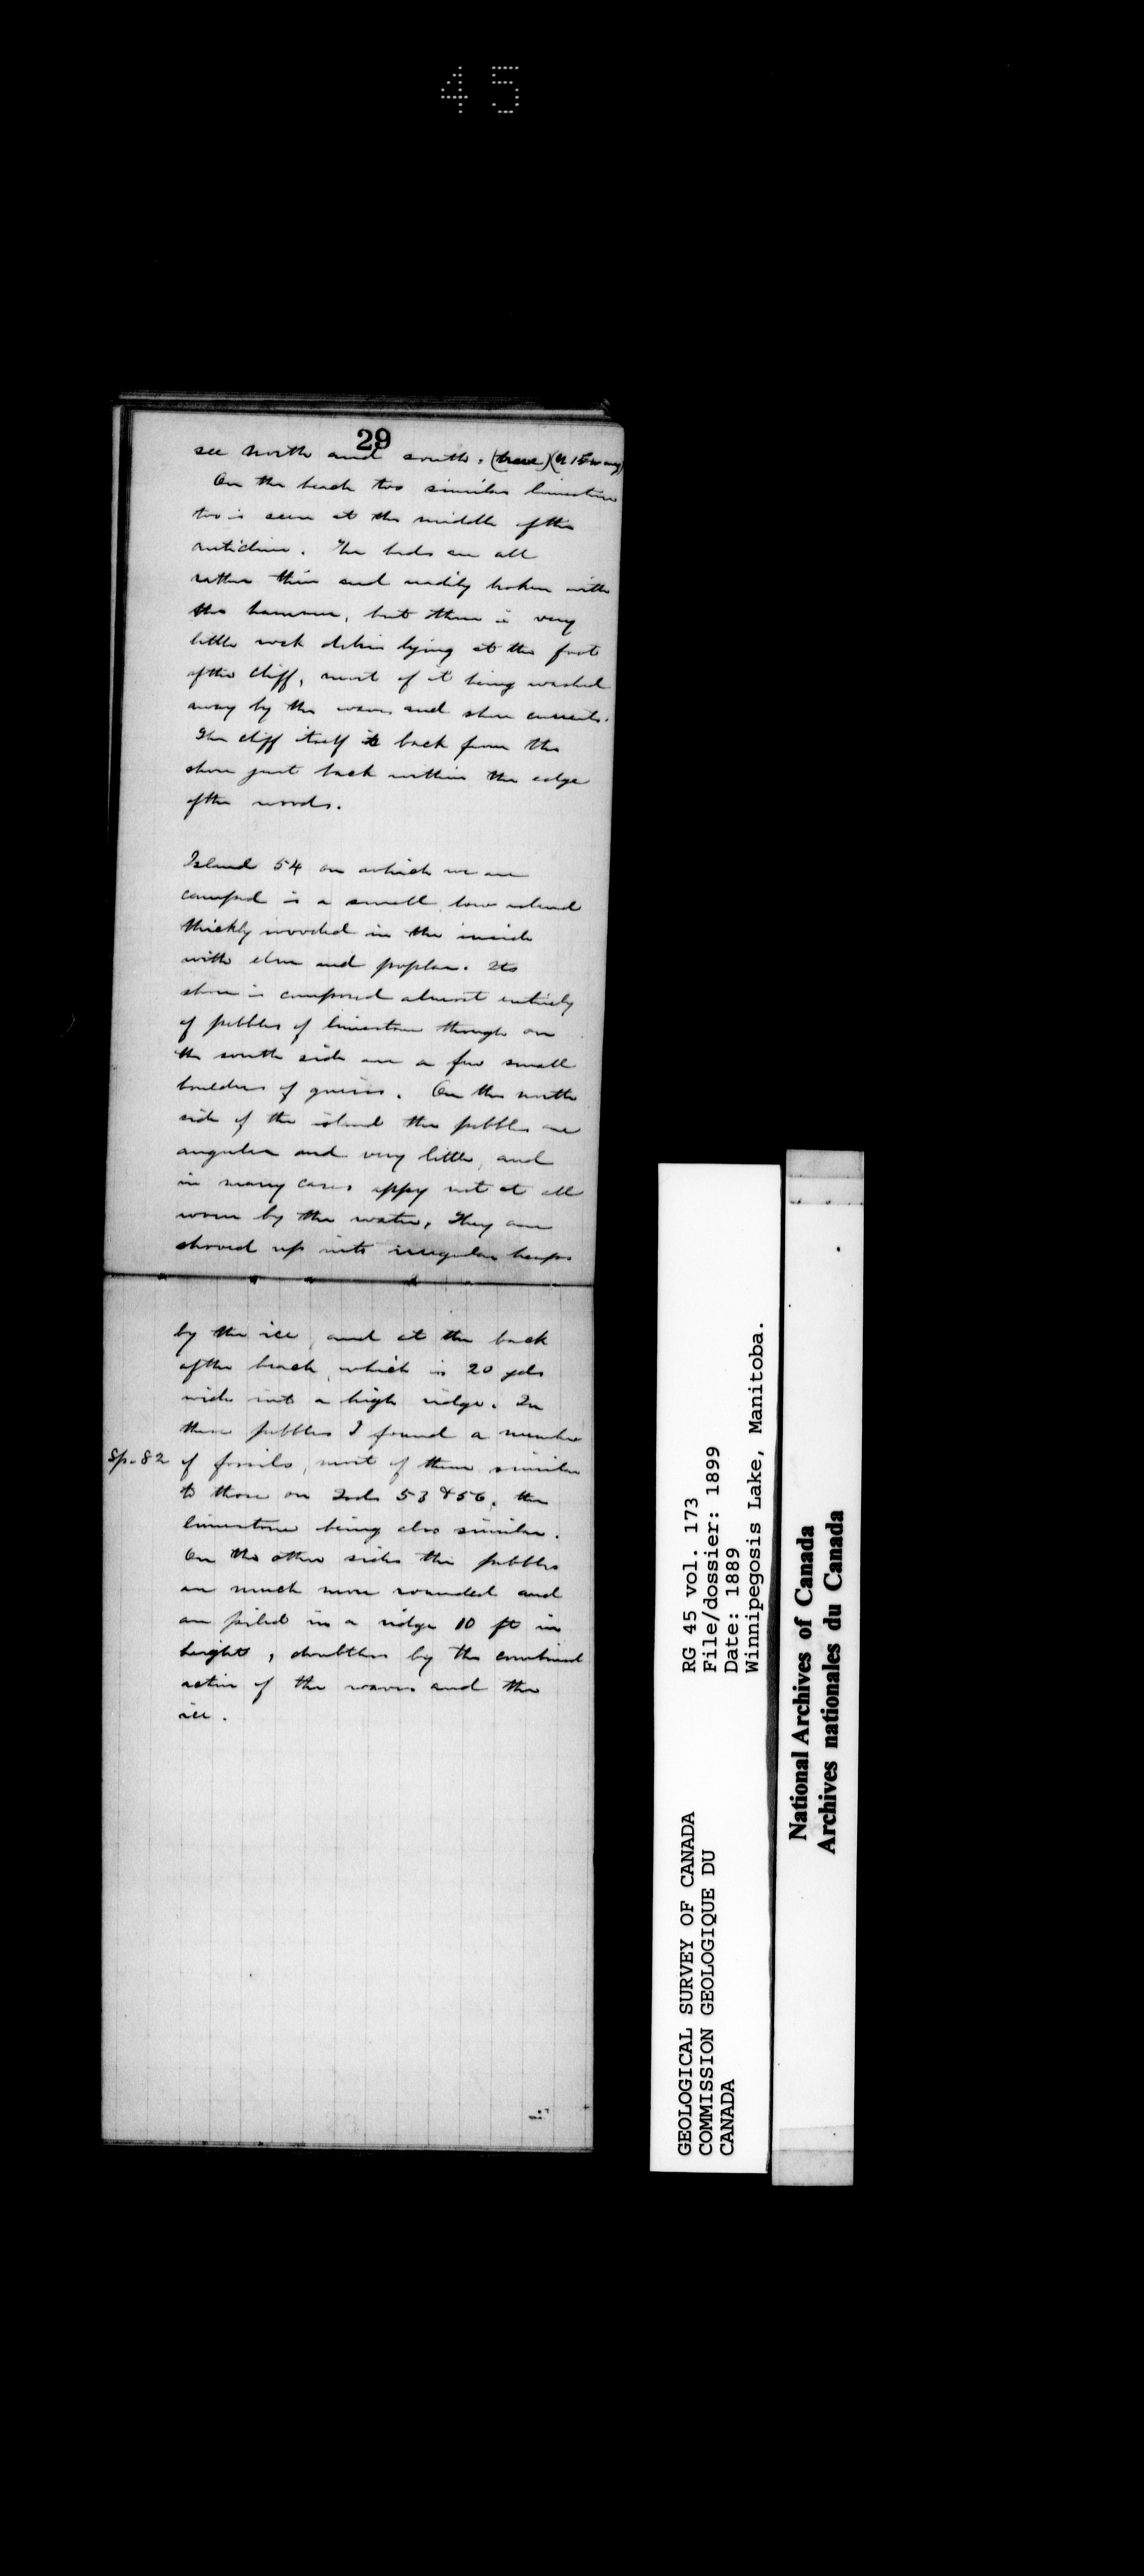 45
29
see north and south. (true) (N 15 W mag)
On the beach too similar limestone
too is seen at the middle of the
anticline. The beds are all
rather thin and readily broken with
the hammer, but there is very
little rock debris lying at the foot
of the cliff, most of it being washed
away by the waves and shore currents.
The cliff itself is back from the
shore just back within the edge
of the woods.
Island 54 on which we are
camped is a small low island
thickly wooded in the inside
with elm and poplar. Its
shore is composed almost entirely
of pebbles of limestone though on
the south side are a few small
boulders of gneiss. On the north
side of the island the pebbles are
angular and very little, and
in many cases appy not at all
worn by the water, They are
shoved up into irregular heaps
by the ice, and at the back
of the beach, which is 20 yds
wide into a high ridge. In
these pebbles I found a number
Sp. 82 of fossils, most of them similar
to those on Isds 53 & 56, the
limestone being also similar.
On the other sides the pebbles
are much more rounded and
are piled in a ridge 10 ft in
height, doubtless by the combined
action of the waves and the
ice.
RG 45 vol. 173
File/dossier: 1899
Date: 1889
Winnipegosis Lake, Manitoba.
GEOLOGICAL SURVEY OF CANADA
COMMISSION GEOLOGIQUE DU
CANADA
National Archives of Canada
Archives nationales du Canada